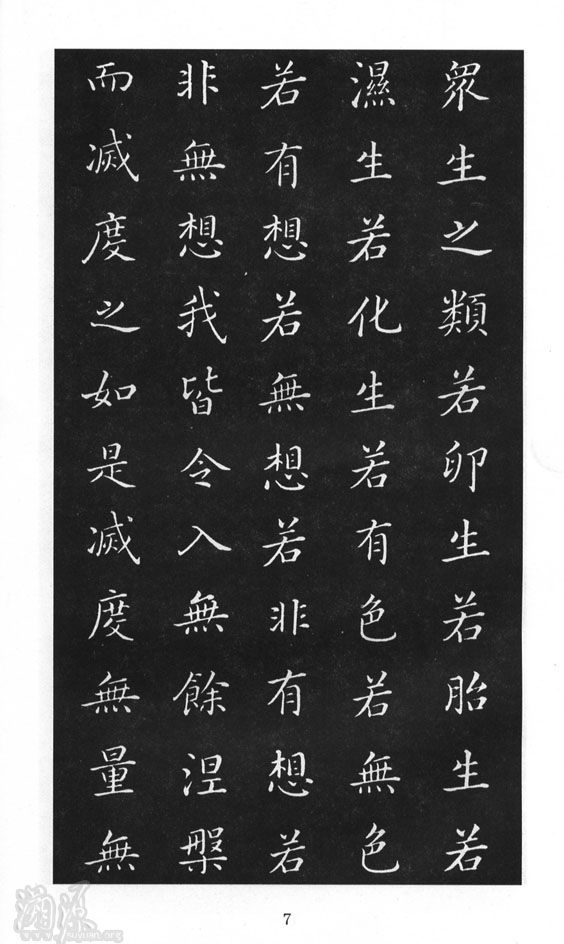 眾生之類若卵生若胎生若
濕生若化生若有色若無色
若有想若無想若非有想若
非無想我皆令入無餘涅槃
而滅度之如是滅度無量無
7
溯源
www.suyuan.org